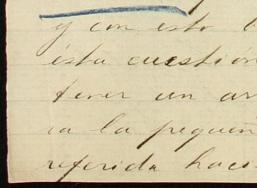 y con esto
ésta cuestión
tener un ar
ca la pequeñ
referida haci